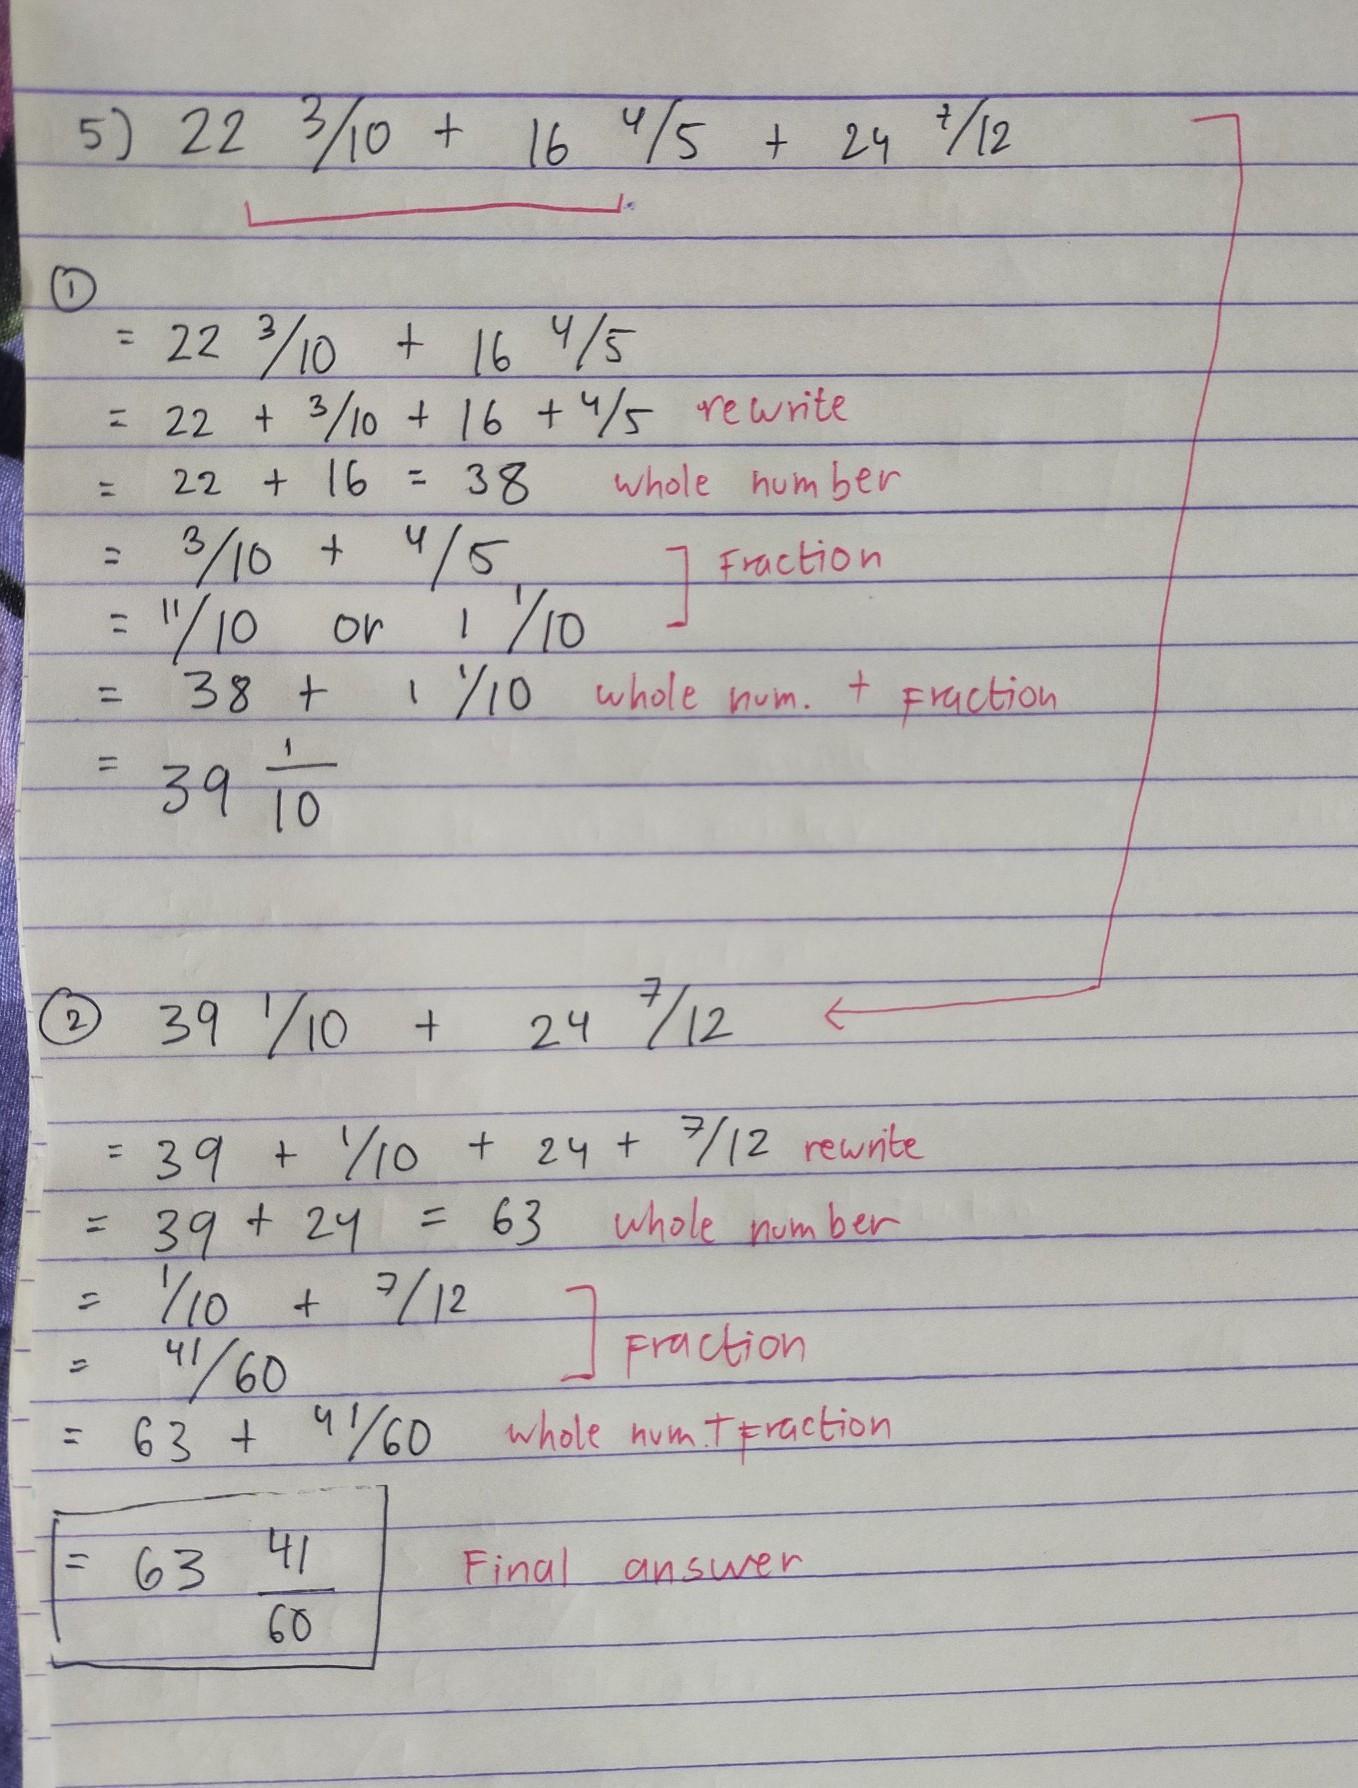 5) 22 3/10 + 16 4/5 + 24 7/12
①
= 22 3/10 + 16 4/5
= 22 + 3/10 + 16 + 4/5 rewrite
= 22 + 16 = 38 whole number
= 3/10 + 4/5
Fraction
= 11/10 or 1 1/10
= 38 + 1 1/10 whole num. + Fraction
= 39 1/10
② 39 1/10 + 24 7/12
= 39 + 1/10 + 24 + 7/12 rewrite
= 39 + 24 = 63 whole number
= 1/10 + 7/12
Fraction
= 41/60
= 63 + 41/60 whole num. + Fraction
= 63 41/60 Final answer